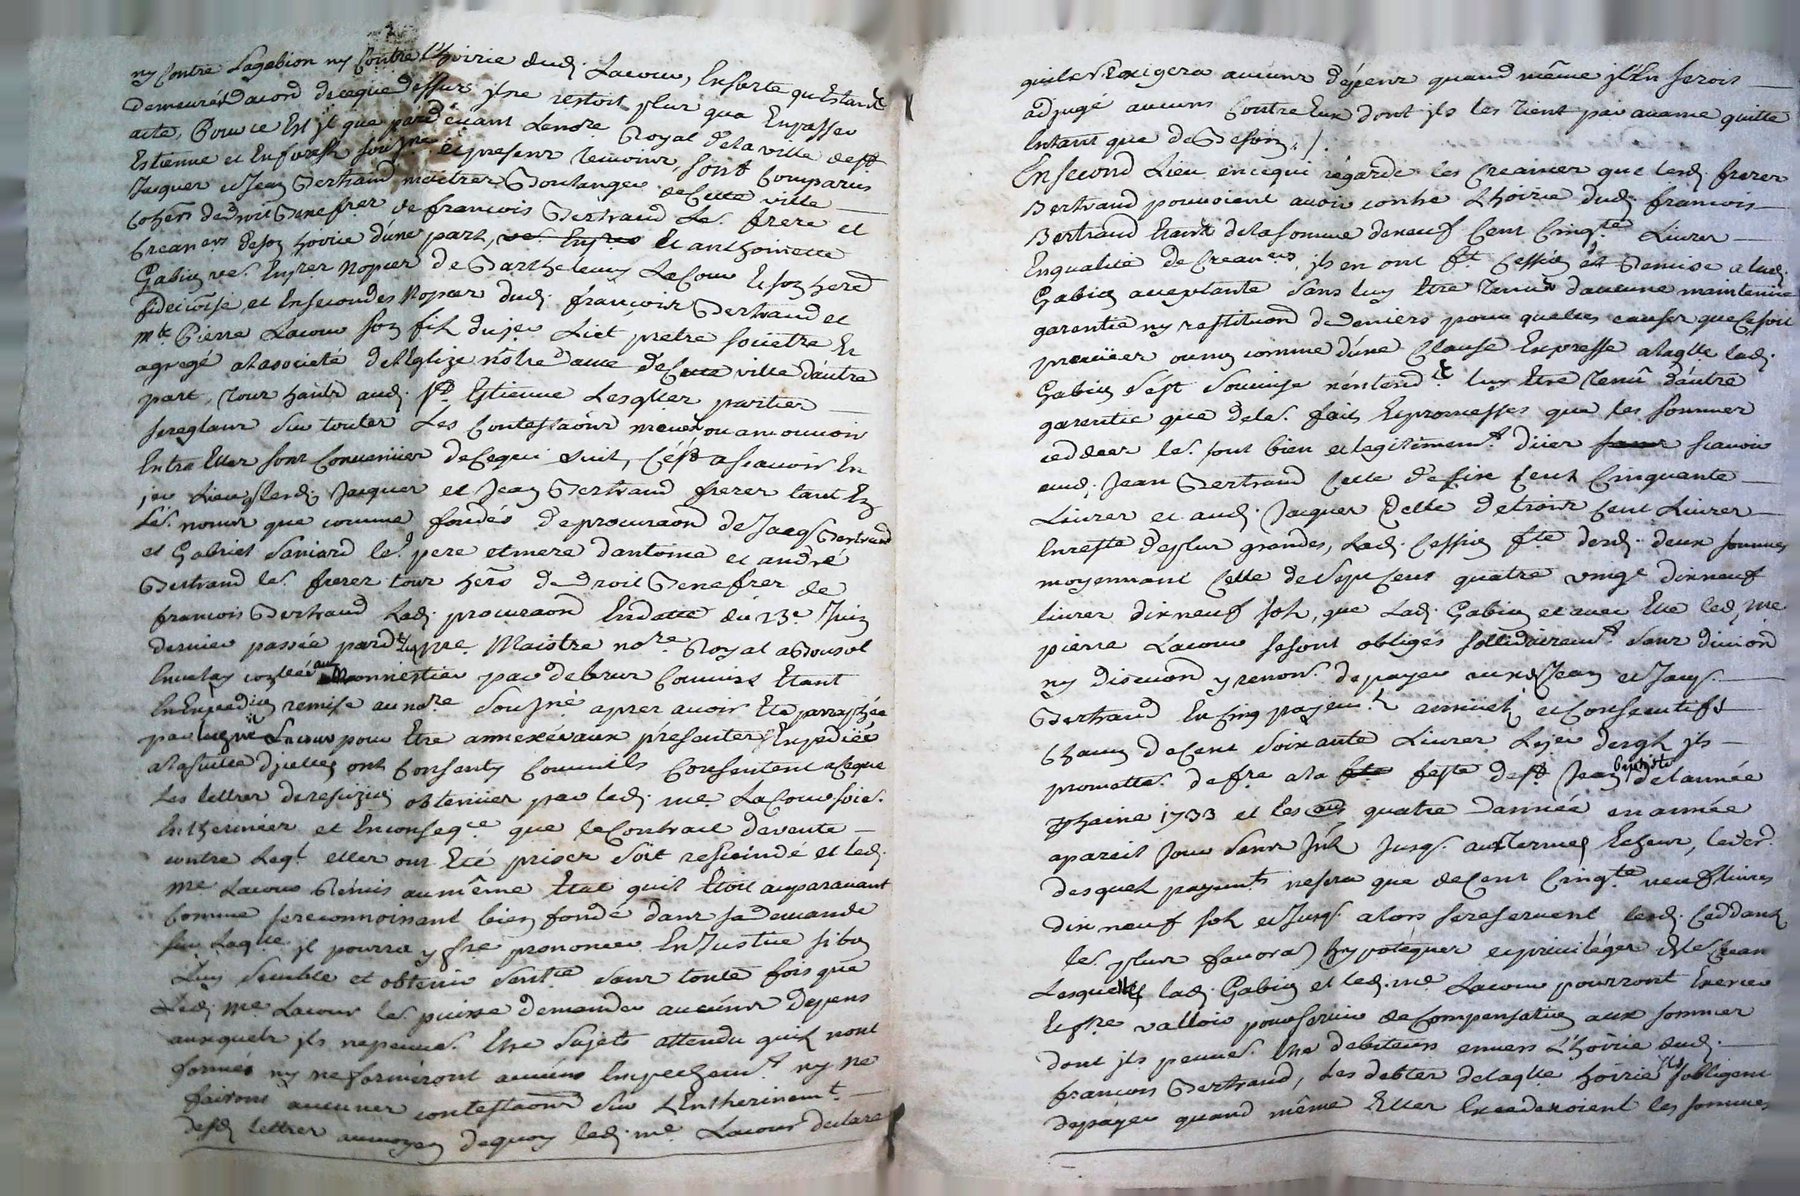 ny contre Lagabion ny Contre l'hoirie dudj Lacour, Ensorte qu'Estant
demeurés dacord de ceque dessus jlne restoit plus qua Enpasser
acte, Pour ce Est jl que pard'evant Lenore Royal delaville de st
Estienne et Enforest sousné et presens temoins sont Comparus
Jacques et Jean Bertrand maitres Boulangers de Cette ville
Cohers de droit Benefrer de francois Bertrand Le. frere et
Crean.ers deson hoirie dune part, Et anthoinette
Gabion ve. En Nopces de Barthelemy Lacour Et son herre
fideicõise, et Ensecondes Nopces dudj. françois Bertrand et
mre Pierre Lacour son fils dujer Lict pretre societre Et
agregé alasocieté del'Eglize nôtre dame de Cette ville d'autre
part, Tous hants audj. st. Estienne Lesqlles parties
sereglant sur toutes Les Contestaõns meues ou amouvoir
Entre Elles sont Convenües de Cequi suit, C'ést ascavoir En
jer Lieu q Lesdj. Jacques et Jean Bertrand freres tant En
Lés. noms que comme fondés de procuraõn de Jacqs Bertrand
et Gabriel le. pere et mere dantoine et andré
Bertrand les. freres tous hers de droit Benefrer de
francois Bertrand Ladj. procuraõn Endatte du 23e. Juin
dernier passée pard maitre nore Royal a
par Commis Etant
En Expedion remise au nore sousné apres avoir Eté parraphée
par Lacour pour Etre annexée aux présentes Expediée
alasuitte djcelles ont Consenty Comme ils Consentent aceque
Les lettres derescizion obtenües par ledj. me. Lacour soie.
Entherinées et Enconseqce que le Contract devente
contre Leql elles ont Eté prises soit rescindé et ledj.
me Lacour Rémis au même Etat quil Etoit auparavant
Comme sereconnoissant bien fondé dans sa demande
sur Laqlle jl pourra y fre prononcer En Justice si bon
Luy semble et obtenir sentce sans toute fois que
Ledj. me Lacour les puisse demander aucuns depens
auxquels jls nepeuve. Etre sujets attendu quils nont
formés ny neformeront aucuns Empechemt. ny ne
fairont aucunes contestaõns sur L'Entherinemt.
desdj lettres aumoyen dequoy ledj. me. Lacour declare
quil n'Exigera aucuns dépens quand même jl En seroit
adjugé aucuns Contre Eux dont jls les tient par avance quitte
Entant que de Besoin ./.
Ensecond Lieu encequi régarde les Creances que lesdj. freres
Bertrand pouvoient avoir contre L'hoirie dudj. francois
Bertrand Etant delasomme deneuf Cent Cinqte Livres
Enqualité de Crean.ers, jls en ont ft Cession et Remise a ladj.
Gabion acceptante sans luy Etre tenus d'aucune maintenüe
garentie ny restituõn de deniers pour quelles causes que Cesoit
preveües ou non comme d'une Clause Expresse alaqlle ladj.
Gabion s'est soumise n'entendt luy Etre tenû d'autre
garentie que de les. faits Et promesses que les sommes
ceddées le. sont bien et legitimemt. dües scavoir
audj. Jean Bertrand Celle de six Cent Cinquante
Livres et audj. Jacques Celle de trois cent Livres
En reste de plus grandes, Ladj. Cession fte desdj. deux sommes
moyennant Celle de Sept cens quatre vingt dix neuf
livres dix neuf sols, que Ladj. Gabion et avec Elle ledj. me
pierre Lacour sesont obligés sollidairemt. sans diviõn
ny discuõn y renon. depayer auxdj. Jean et Jacqs.
Bertrand En Cinq payemts annüels et Consecutifs
Chacun de Cent soixante Livres Lejer desqls jls
promette. de fre ala feste de st. Jean baptiste de l'année
pchaine 1733 et les quatre d'année en année
apareil Jour sans Jnts. Jusq. auxtermes Echeux, leder
desquels payemts nesera que deCent Cinqte neuf livres
dix neuf sols et Jusq. alors sereservent lesdj. Ceddants
les. plus favora) hypoteques et privilèges Et les. Crean
Lesquelles ladj. Gabion et ledj. me. Lacour pourront Exercer
Et fre valloir pour servir de Compensation aux sommes
dont jls peuve. Etre debiteurs envers L'hoirie dudj.
francois Bertrand, les debtes delaqlle hoirie jls s'obligent
depayer quand même Elles Excederoient les sommes